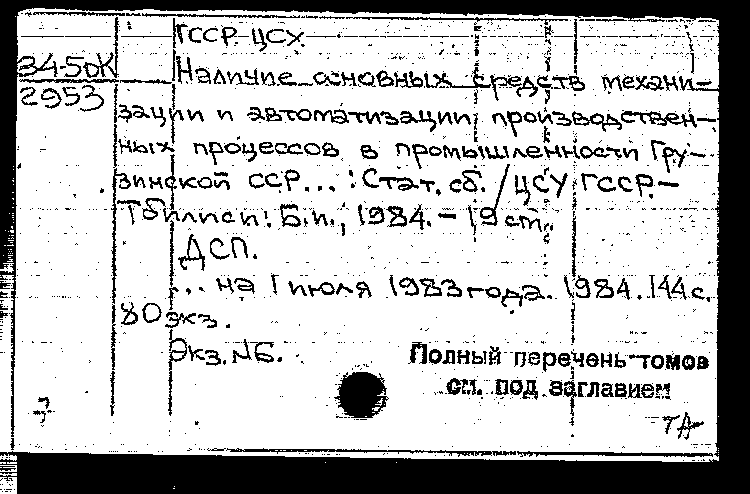 ГССР. ЦСУ.
34-5ДК
2953
Наличие основных средств механи-
зации и автоматизации производствен-
ных процессов в промышленности Гру-
зинской ССР... : Стат. сб. / ЦСУ ГССР. -
Тбилиси: Б.и., 1984. - 19 см.
ДСП.
... на 1 июля 1983 года. 1984. 144 с.
80 экз.
Экз. №Б.
Полный перечень томов
см. под заглавием